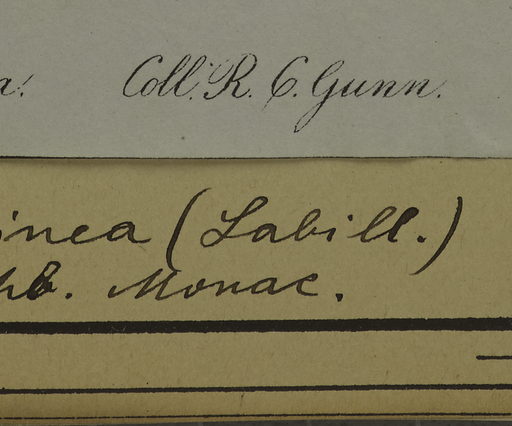 a. Coll. R. C. Gunn.
inea (Labill.)
hb. Monac.